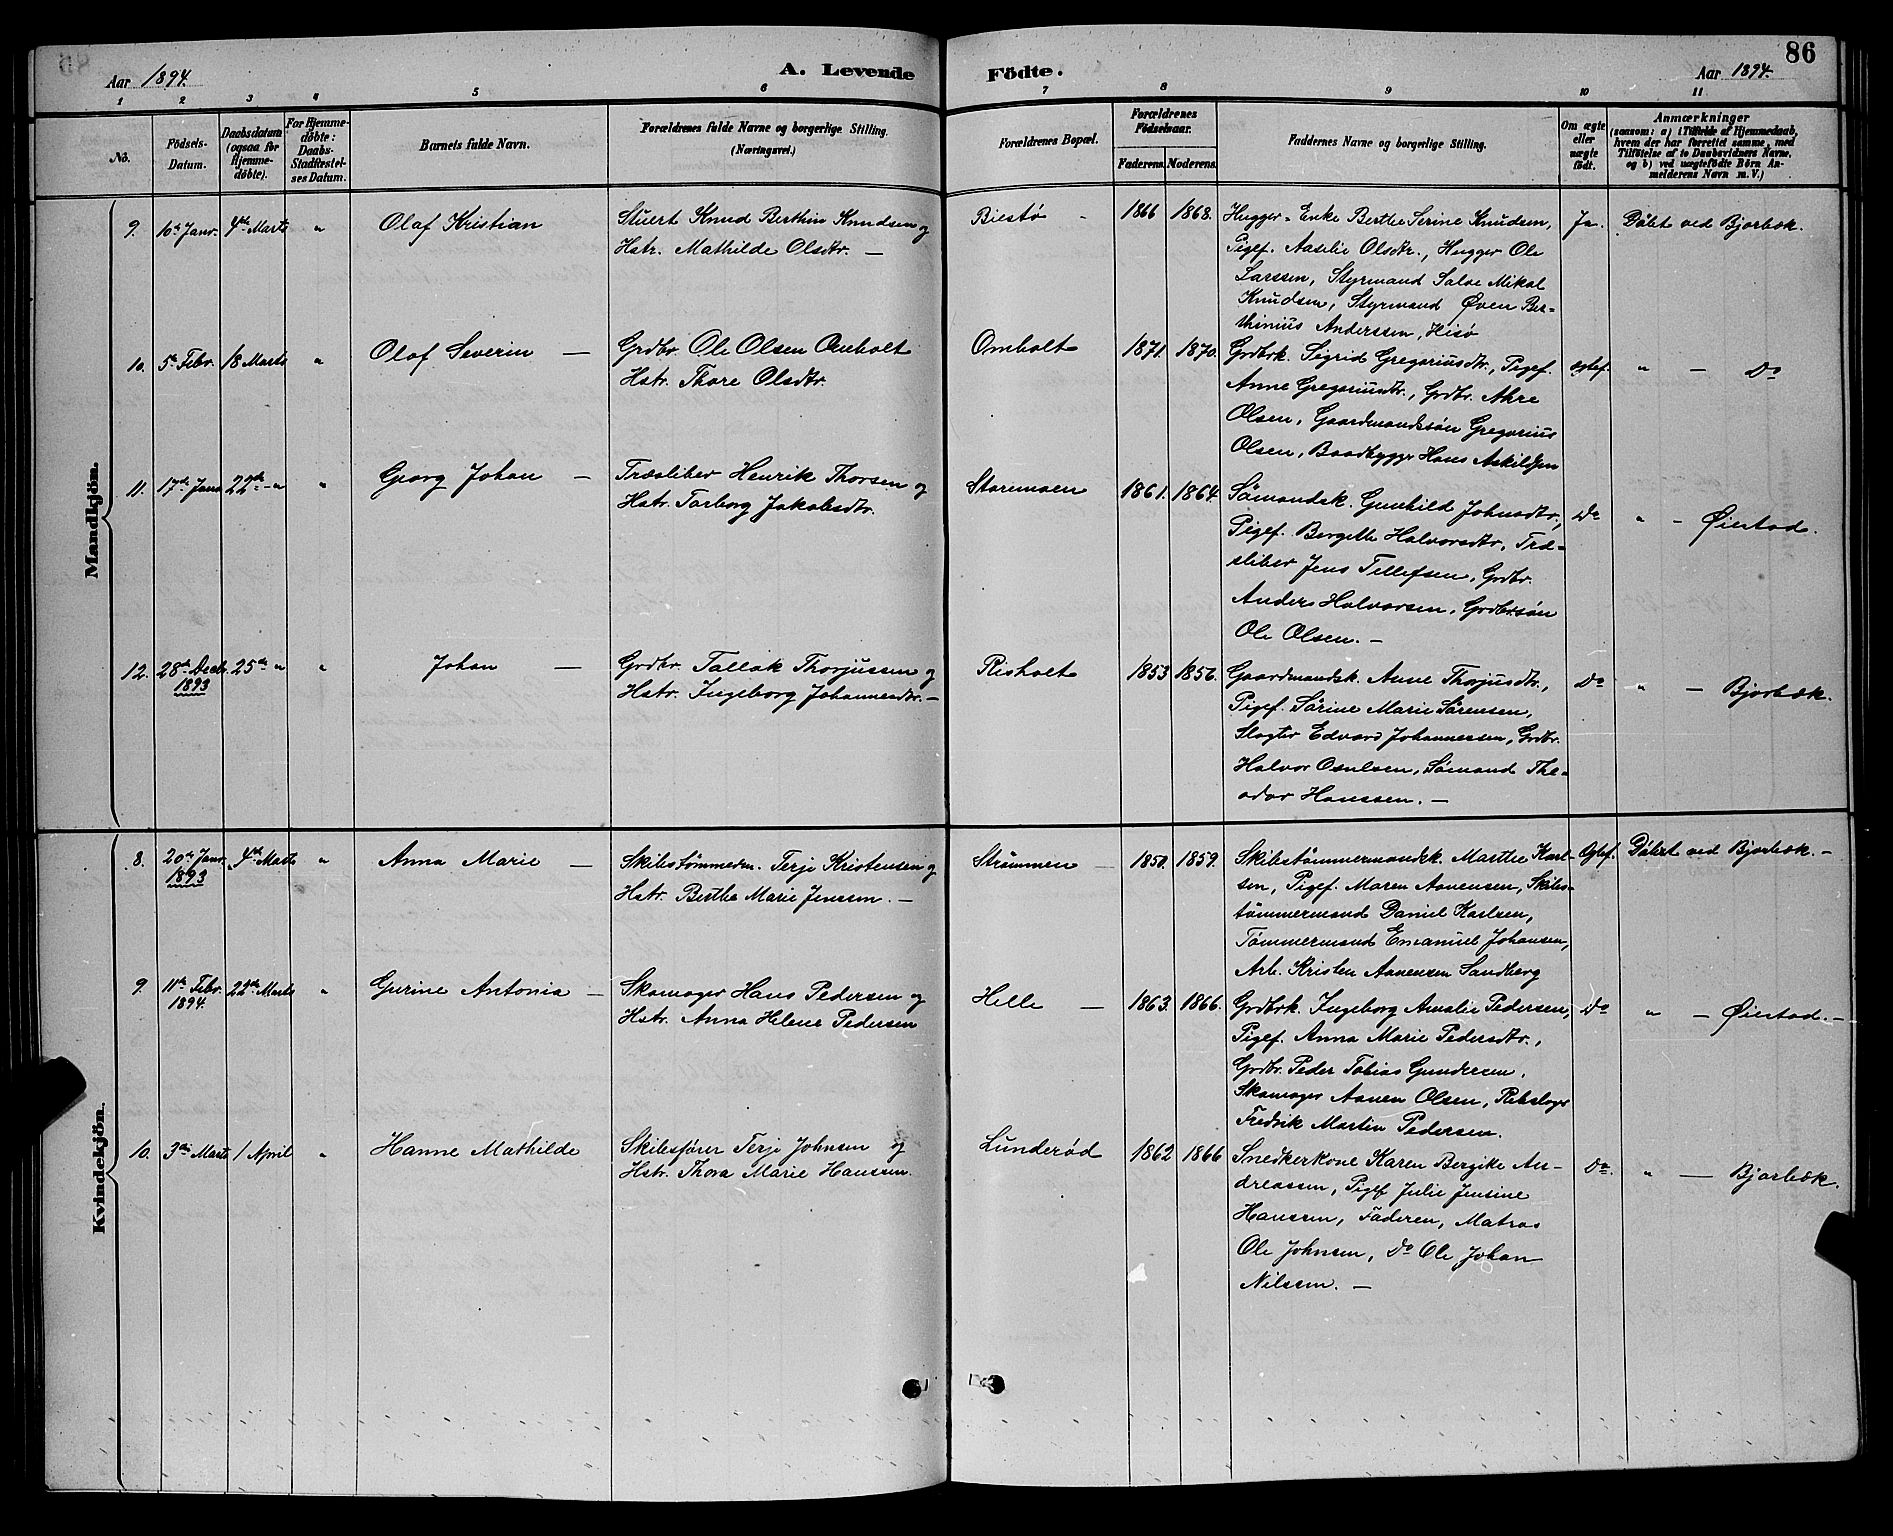 86
Aar 1894.
A. Levende Födte.
Aar 1894.
1 2 3 4 5 6 7 8 9 10 11
No.
Födsels-Datum.
Daabsdatum (ogsaa for Hjemme-döbte).
For Hjemme-döbte: Daabs-Stadfæstel-ses Datum.
Barnets fulde Navn.
Forældrenes fulde Navne og borgerlige Stilling.
(Næringsvei.)
Forældrenes Bopæl.
Forældrenes Födselsaar.
Faderens. Moderens.
Faddernes Navne og borgerlige Stilling.
Om ægte eller uægte födt.
Anmærkninger
(saasom: a) i Tilfælde af Hjemmedaab,
hvem der har forrettet samme, med
Tilföielse af to Daabsvidners Navne,
og b) ved uægtefödte Börn An-
melderens Navn m. V.)
Mandkjön.
9. 10de Janr. 4de Marts " Olaf Kristian
Stuert Knud Berthin Knudsen og
Hstr. Mathilde Olsdtr. —
Biestø - 1866 1868.
Hugger-Enke Berthe Serine Knudsen,
Pigef. Aaselie Olsdtr., Hugger Ole
Larssen, Styrmand Salve Mikal
Knudsen, Styrmand Øven Ber-
thinius Anderssen, Hisø
Ja. Døbt ved Bjorbæk.
10. 5te Febr. 18 Marts " Olaf Severin —
Grdbr. Ole Olsen Omholt
Hstr. Thore Olsdtr.
Omholt 1871. 1870.
Grdbrk. Sigrid Gregoriusdtr., Pigef.
Anne Gregoriusdtr., Grdbr. Akre
Olsen, Gaardmandssøn Gregorius
Olsen, Baadbygger Hans Askildsen
Ægtef. " — Do
11. 17de Janr 22de " Georg Johan —
Træsliber Henrik Thorsen og
Hstr. Torborg Jakobsdtr.
Staremoen 1861. 1864.
Sømandsk. Gunhild Johnsdtr.,
Pigef. Bergitte Halvorsdtr., Træ-
sliber Jens Tellefsen, Grdbr.
Anders Halvorsen, Grdbrsøn
Ole Olsen. —
Do " - Øiestad.
12. 28de Decbr. 1893 25de " " Johan —
Grdbr. Tallak Thorjussen og
Hstr. Ingeborg Johannesdtr. —
Risholt 1853 1856.
Gaardmandsk. Anne Thorjusdtr.,
Pigef. Sørine Marie Sørensen,
Slagter Edvard Johannessen, Grdbr.
Halvor Osulsen, Sømand The-
odor Hanssen. —
Do " — Bjorbæk.
Kvindekjön.
8. 20de Janr. 1893 4de Marts " Anna Marie —
Skibstømmerm. Terje Kristensen og
Hstr. Berthe Marie Jenssen. —
Strømmen — 1850. 1859.
Skibstømmermandsk. Marthe Karl-
sen, Pigef. Maren Aanensen, Skibs-
tømmermand Daniel Karlsen,
Tømmermand Emanuel Johansen,
Arb. Kristen Aanensen Sandberg
Ægtef. Døbt ved Bjorbæk. —
9. 11te Febr. 1894. 22de Marts " Gurine Antonia —
Skomager Hans Pedersen og
Hstr. Anna Helene Pedersen
Helle — 1863. 1866.
Grdbrk. Ingeborg Amalie Pedersen,
Pigef. Anna Marie Pedersdtr.,
Grdbr. Peder Tobias Gundersen,
Skomager Aanen Olsen, Rebslager
Fredrik Martin Pedersen.
Do " — Øiestad. —
10. 3die Marts 1 April " Hanne Mathilde
Skibsfører Terje Johnsen og
Hstr. Thora Marie Hansen.
Lunderød 1862 1866
Snedkerkone Karen Bergike An-
dreassen, Pigef Julie Jensine
Hanssen, Faderen, Matros
Ole Johnsen, Do Ole Johan
Nilssen. —
Do. " — Bjorbæk.